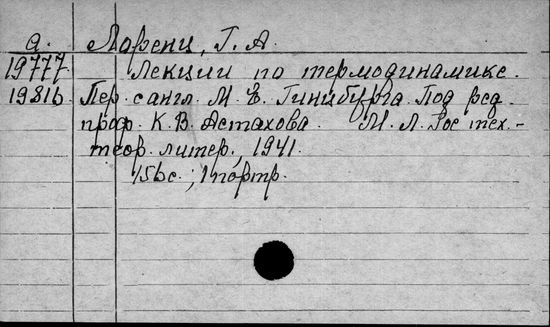 а. Лоренц, Г. А.
19777 Лекции по термодинамике.
19816 Пер. с англ. М. Е. Гинзбурга. Под ред.
проф. К. В. Астахова. М. Л. Гос тех.-
теор. литер., 1941.
156с.; 1 портр.